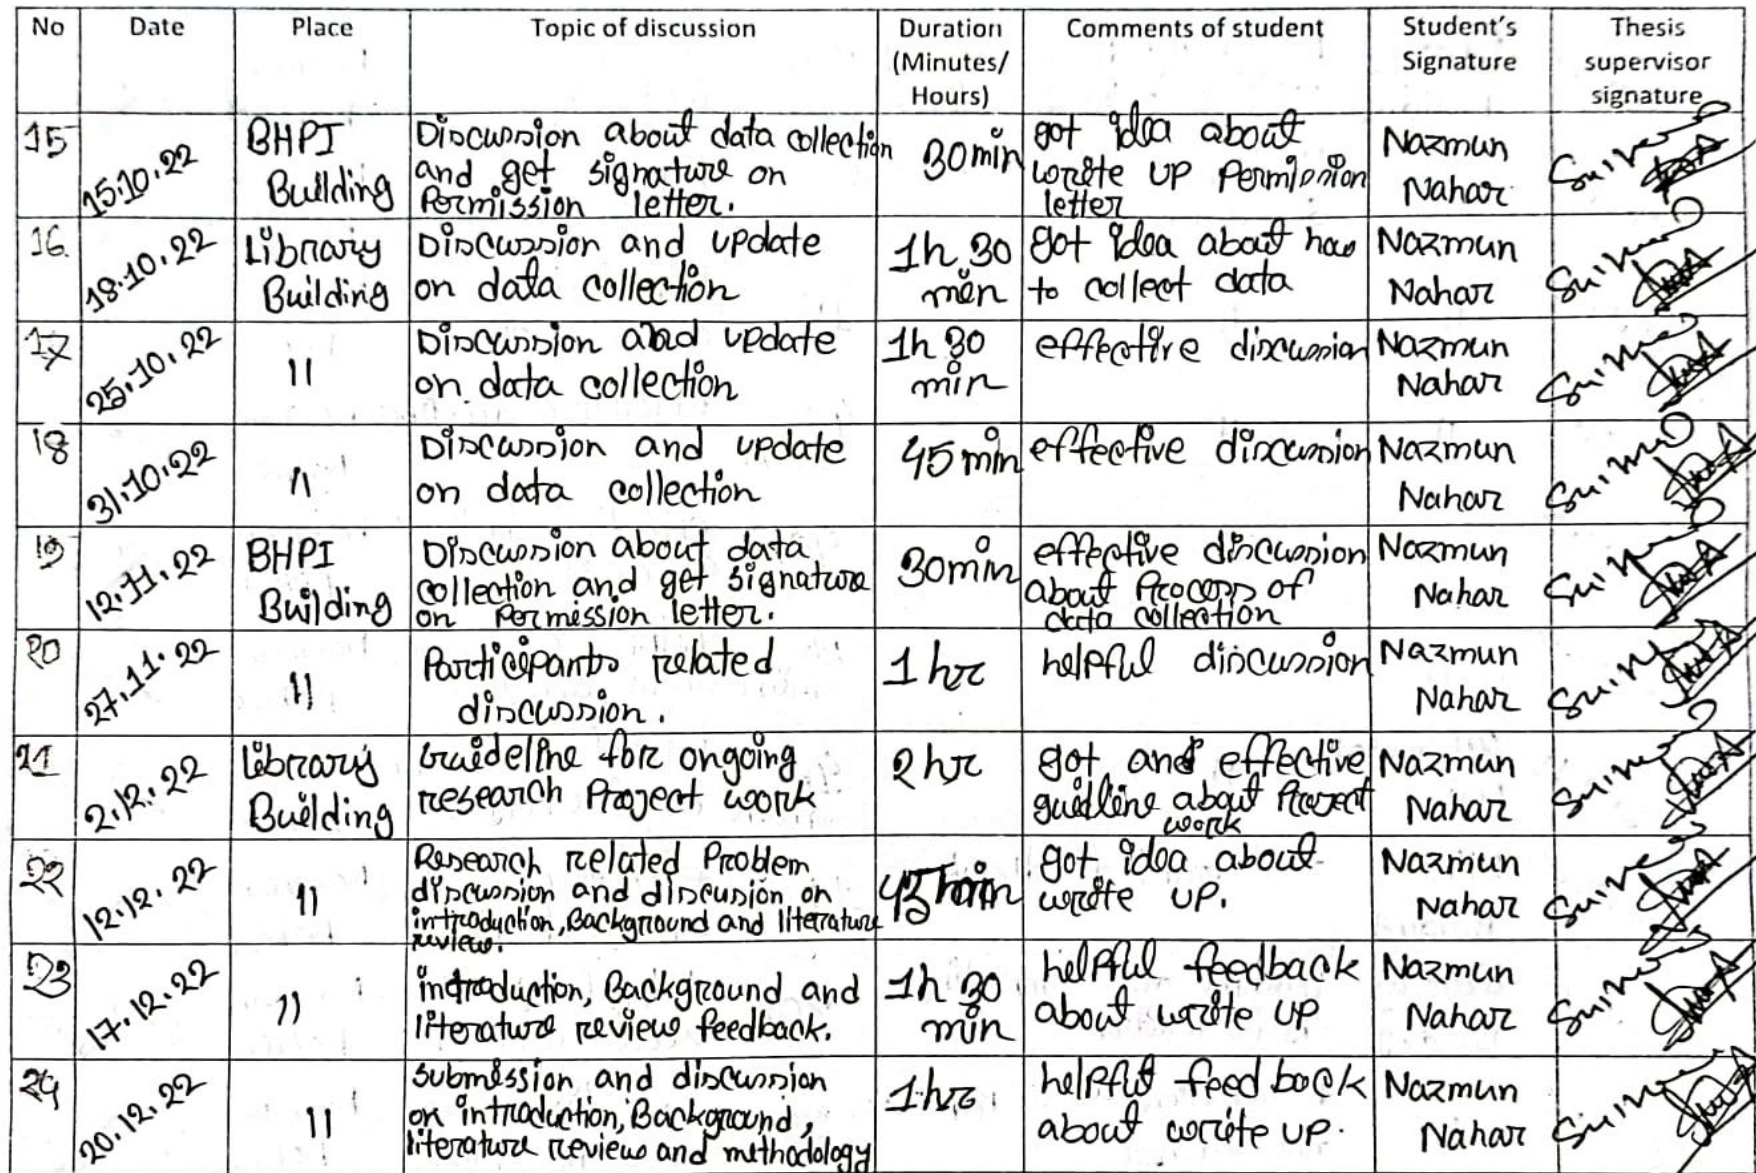 No Date Place Topic of discussion Duration (Minutes/ Hours) Comments of student Student's Signature Thesis supervisor signature
15 15.10.22 BHPI Building Discussion about data collection and get signature on Permission letter. 30 min got idea about write up Permission letter Nazmun Nahar
16 18.10.22 Library Building Discussion and update on data collection 1h 30 min got idea about how to collect data Nazmun Nahar
17 25.10.22 11 Discussion and update on data collection 1h 30 min effective discussion Nazmun Nahar
18 31.10.22 11 Discussion and update on data collection 45 min effective discussion Nazmun Nahar
19 12.11.22 BHPI Building Discussion about data collection and get signature on Permission letter. 30 min effective discussion about Process of data collection Nazmun Nahar
20 27.11.22 11 Participants related discussion. 1 hr helpful discussion Nazmun Nahar
21 2.12.22 Library Building Guideline for ongoing research Project work 2 hr got and effective guidline about Project work Nazmun Nahar
22 12.12.22 11 Research related Problem discussion and discussion on introduction, Background and literature review. 45 min got idea about write up. Nazmun Nahar
23 17.12.22 11 introduction, Background and literature review feedback. 1h 30 min helpful feedback about write up Nazmun Nahar
24 20.12.22 11 submission and discussion on introduction, Background, literature review and methodology 1 hr helpful feed back about write up. Nazmun Nahar